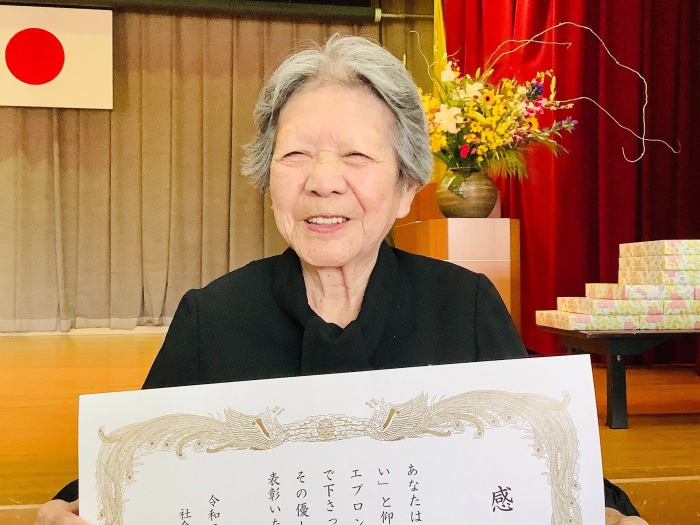 感
あなたは
い」と仰
エプロン
で下さっ
その優し
表彰いた
令和
社会